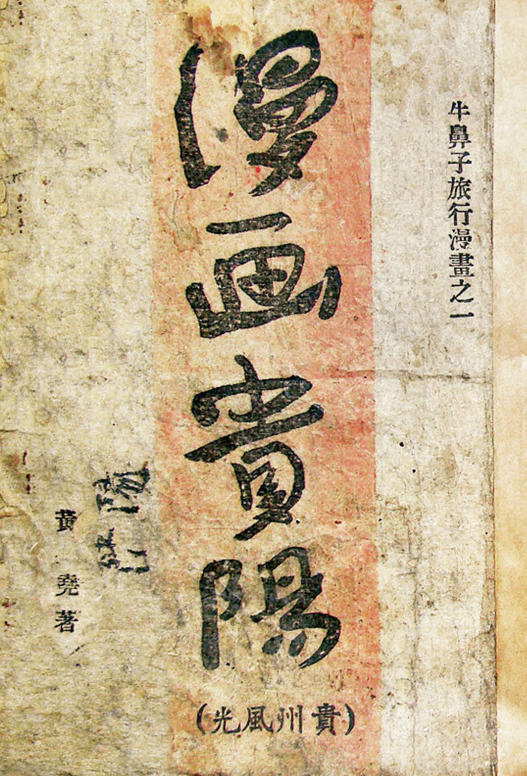 牛鼻子旅行漫畫之一
漫画貴陽
(貴州風光)
黃堯著